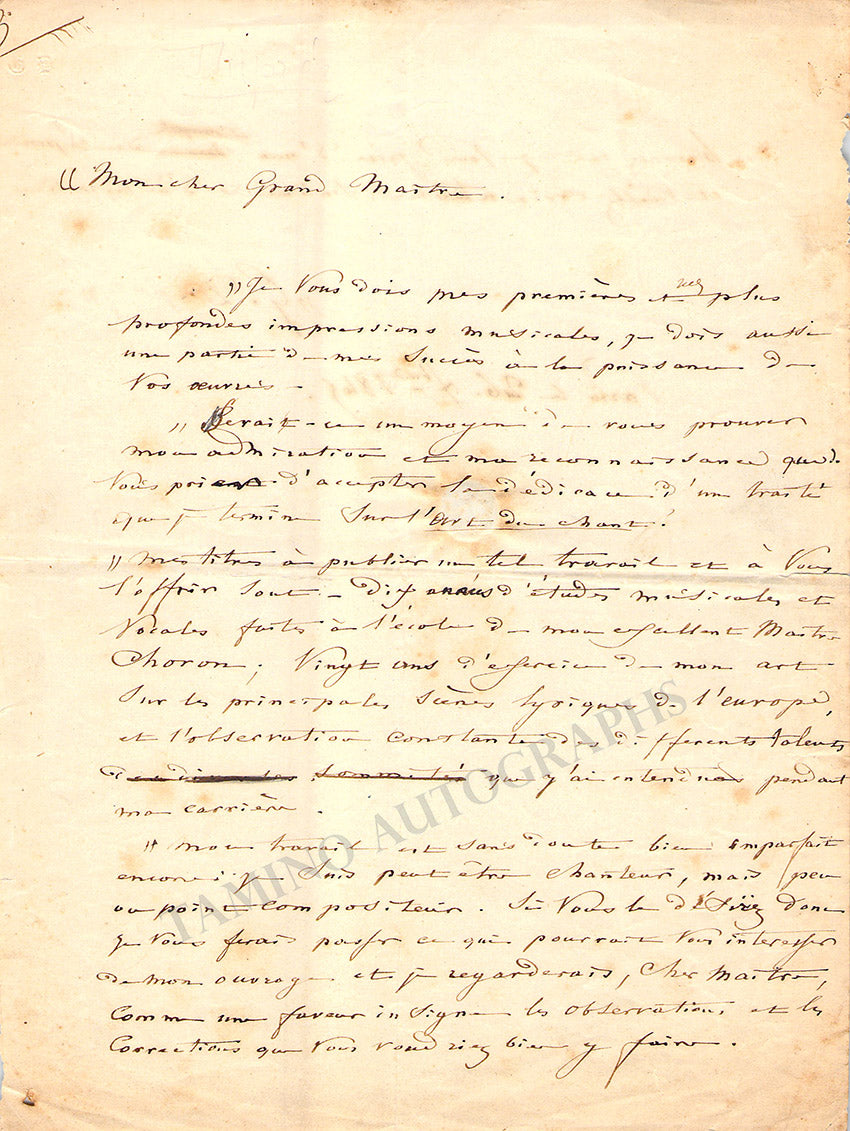 « Mon cher Grand Maître.
» Je Vous dois mes premières et mes plus
profondes impressions musicales, je dois aussi
une partie de mes Succès à la puissance de
Vos œuvres.
» Serait-ce un moyen de vous prouver
mon admiration et ma reconnaissance que de
Vous prier d'accepter la dédicace d'un traité
que je termine Sur l'Art du chant!
» mes titres à publier un tel travail et à Vous
l'offrir Sont - dix années d'études musicales et
Vocales faites à l'école de mon excellent Maître
Choron; Vingt ans d'exercice de mon art
Sur les principales Scènes lyriques de l'europe,
et l'observation constante des différents talents
que j'ai entendus pendant
ma carrière.
» mon travail est sans doute bien imparfait
encore; je Suis peut être Chanteur, mais peu
ou point Compositeur. Si Vous le désirez donc
je Vous ferais passer ce qui pourrait Vous intéresser
de mon ouvrage et je regarderais, Cher Maître,
Comme une faveur insigne les observations et les
Corrections que Vous voudriez bien y faire.
TAMINO AUTOGRAPHS